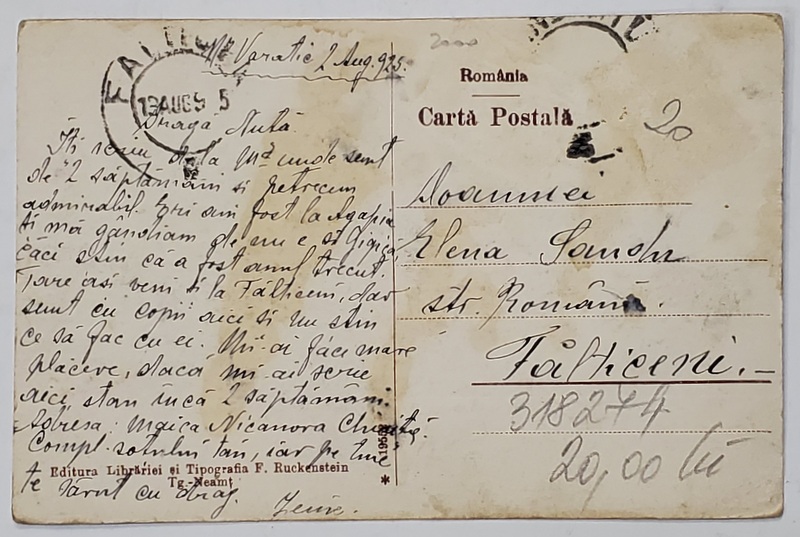 FALTIC
13 AUG 9 5
M. Varatic 2 Aug. 925.
Draga Nută
Îți scriu dela Mă unde sunt
de 2 săptămâni si petrecem
admirabil. Eri am fost la Agapia
și mă gândiam de nu e si Gigică
căci știu că a fost anul trecut.
Tare asi veni si la Fălticeni, dar
sunt cu copii aici si nu știu
ce să fac cu ei. Mi-ai face mare
plăcere, dacă mi-ai scrie
aici, stau încă 2 săptămâni
Adresa: Maica Nicanora
Compl. soțului tău, iar pe tine
te sărut cu drag.
Editura Librăriei și Tipografia F. Ruckenstein
Tg.-Neamț
*
România
Cartă Postală
20
Doamnei
Elena Sandu
str. Română.
Fălticeni.-
318274
20,00 lei